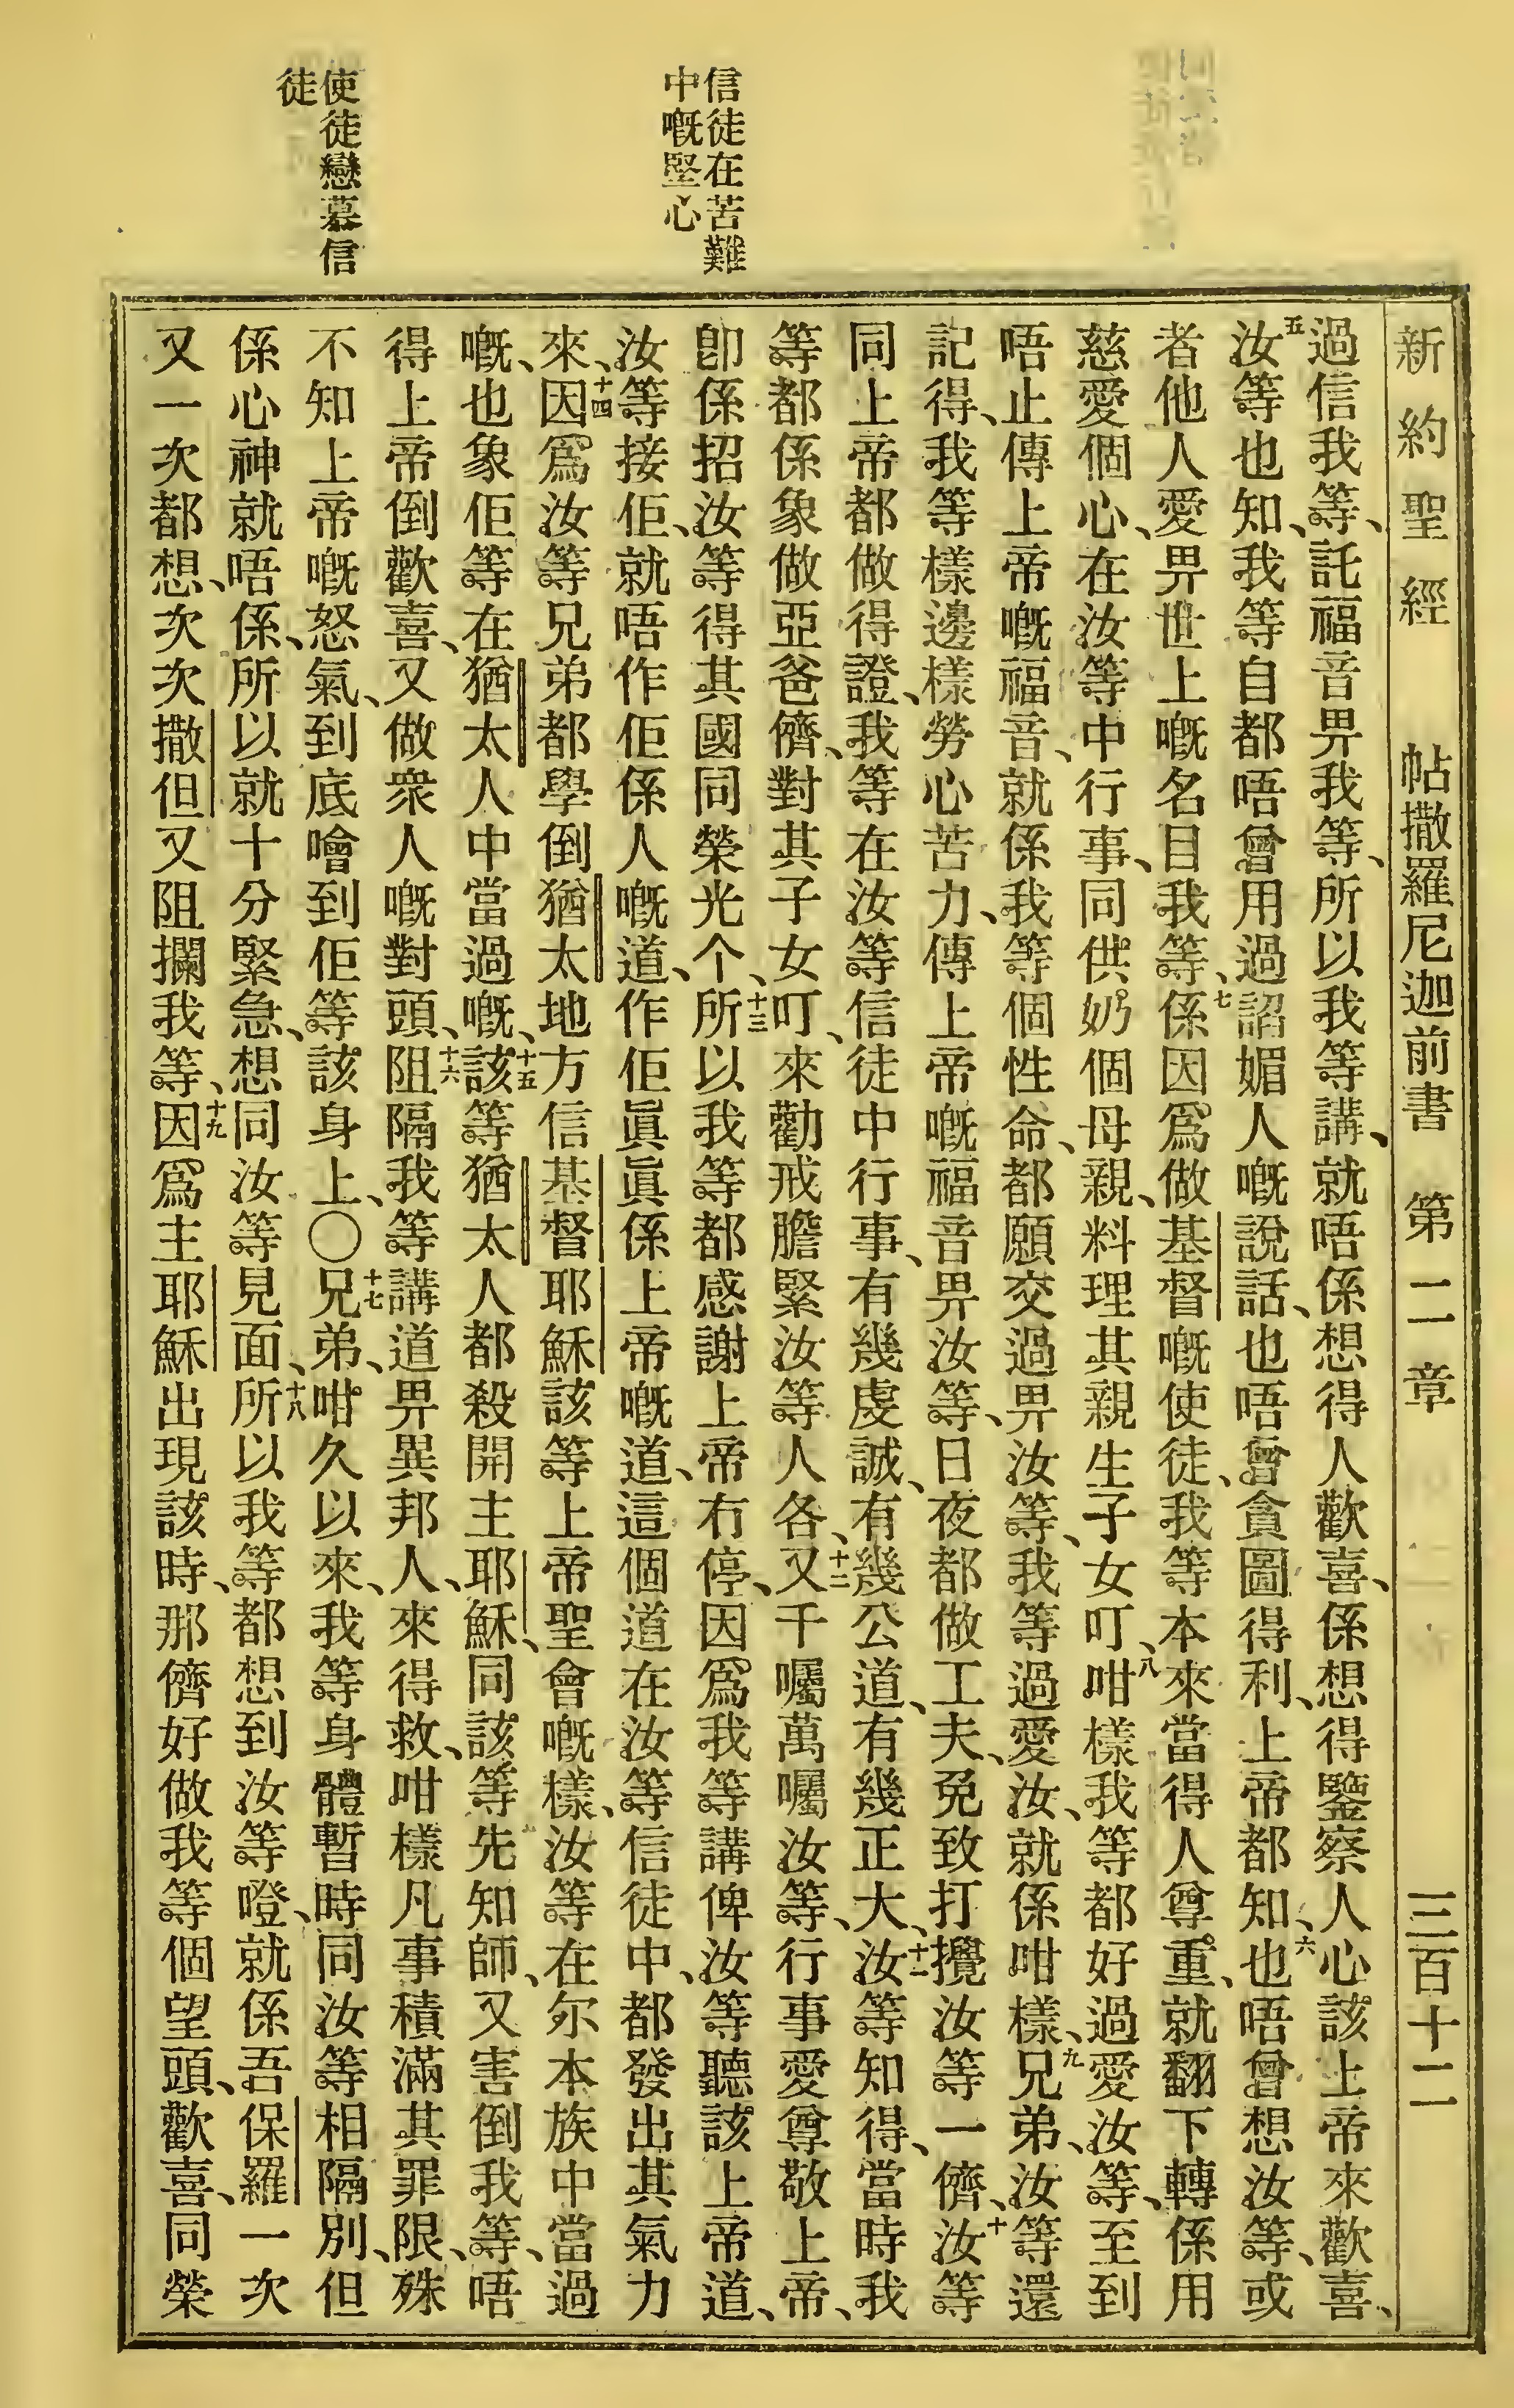 新約聖經　帖撒羅尼迦前書　第二章　三百十二
過信我等、託福音畀我等、所以我等講、就唔係想得人歡喜、係想得鑒察人心該上帝來歡喜、
五汝等也知、我等自都唔曾用過諂媚人嘅說話、也唔曾貪圖得利、上帝都知、六也唔曾想汝等、或
者他人愛畀世上嘅名目我等、七係因爲做基督嘅使徒、我等本來當得人尊重、就翻下轉係用
慈愛個心、在汝等中行事、同供奶個母親、料理其親生子女叮、八咁樣我等都好過愛汝等、至到
唔止傳上帝嘅福音、就係我等個性命、都願交過畀汝等、我等過愛汝、就係咁樣、九兄弟、汝等還
記得、我等樣邊樣勞心苦力、傳上帝嘅福音畀汝等、日夜都做工夫、免致打攪汝等一儕、十汝等
同上帝都做得證、我等在汝等信徒中行事、有幾虔誠、有幾公道、有幾正大、十一汝等知得、當時我
等都係象做亞爸儕、對其子女叮、來勸戒膽緊汝等人各、十二又千囑萬囑汝等、行事愛尊敬上帝、
卽係招汝等得其國同榮光个、十三所以我等都感謝上帝冇停、因爲我等講俾汝等聽該上帝道、
汝等接佢、就唔作佢係人嘅道、作佢眞眞係上帝嘅道、這個道在汝等信徒中、都發出其氣力
來、十四因爲汝等兄弟都學倒猶太地方信基督耶穌該等上帝聖會嘅樣、汝等在尔本族中當過
嘅、也象佢等在猶太人中當過嘅、十五該等猶太人都殺開主耶穌、同該等先知師、又害倒我等、唔
得上帝倒歡喜、又做衆人嘅對頭、十六阻隔我等講道畀異邦人、來得救、咁樣凡事積滿其罪限、殊
不知上帝嘅怒氣、到底噲到佢等該身上、〇十七兄弟、咁久以來、我等身體暫時同汝等相隔別、但
係心神就唔係、所以就十分緊急、想同汝等見面、十八所以我等都想到汝等嶝、就係吾保羅一次
又一次都想、次次撒但又阻攔我等、十九因爲主耶穌出現該時、那儕好做我等個望頭、歡喜、同榮
信徒在苦難
中嘅堅心
使徒戀慕信
徒